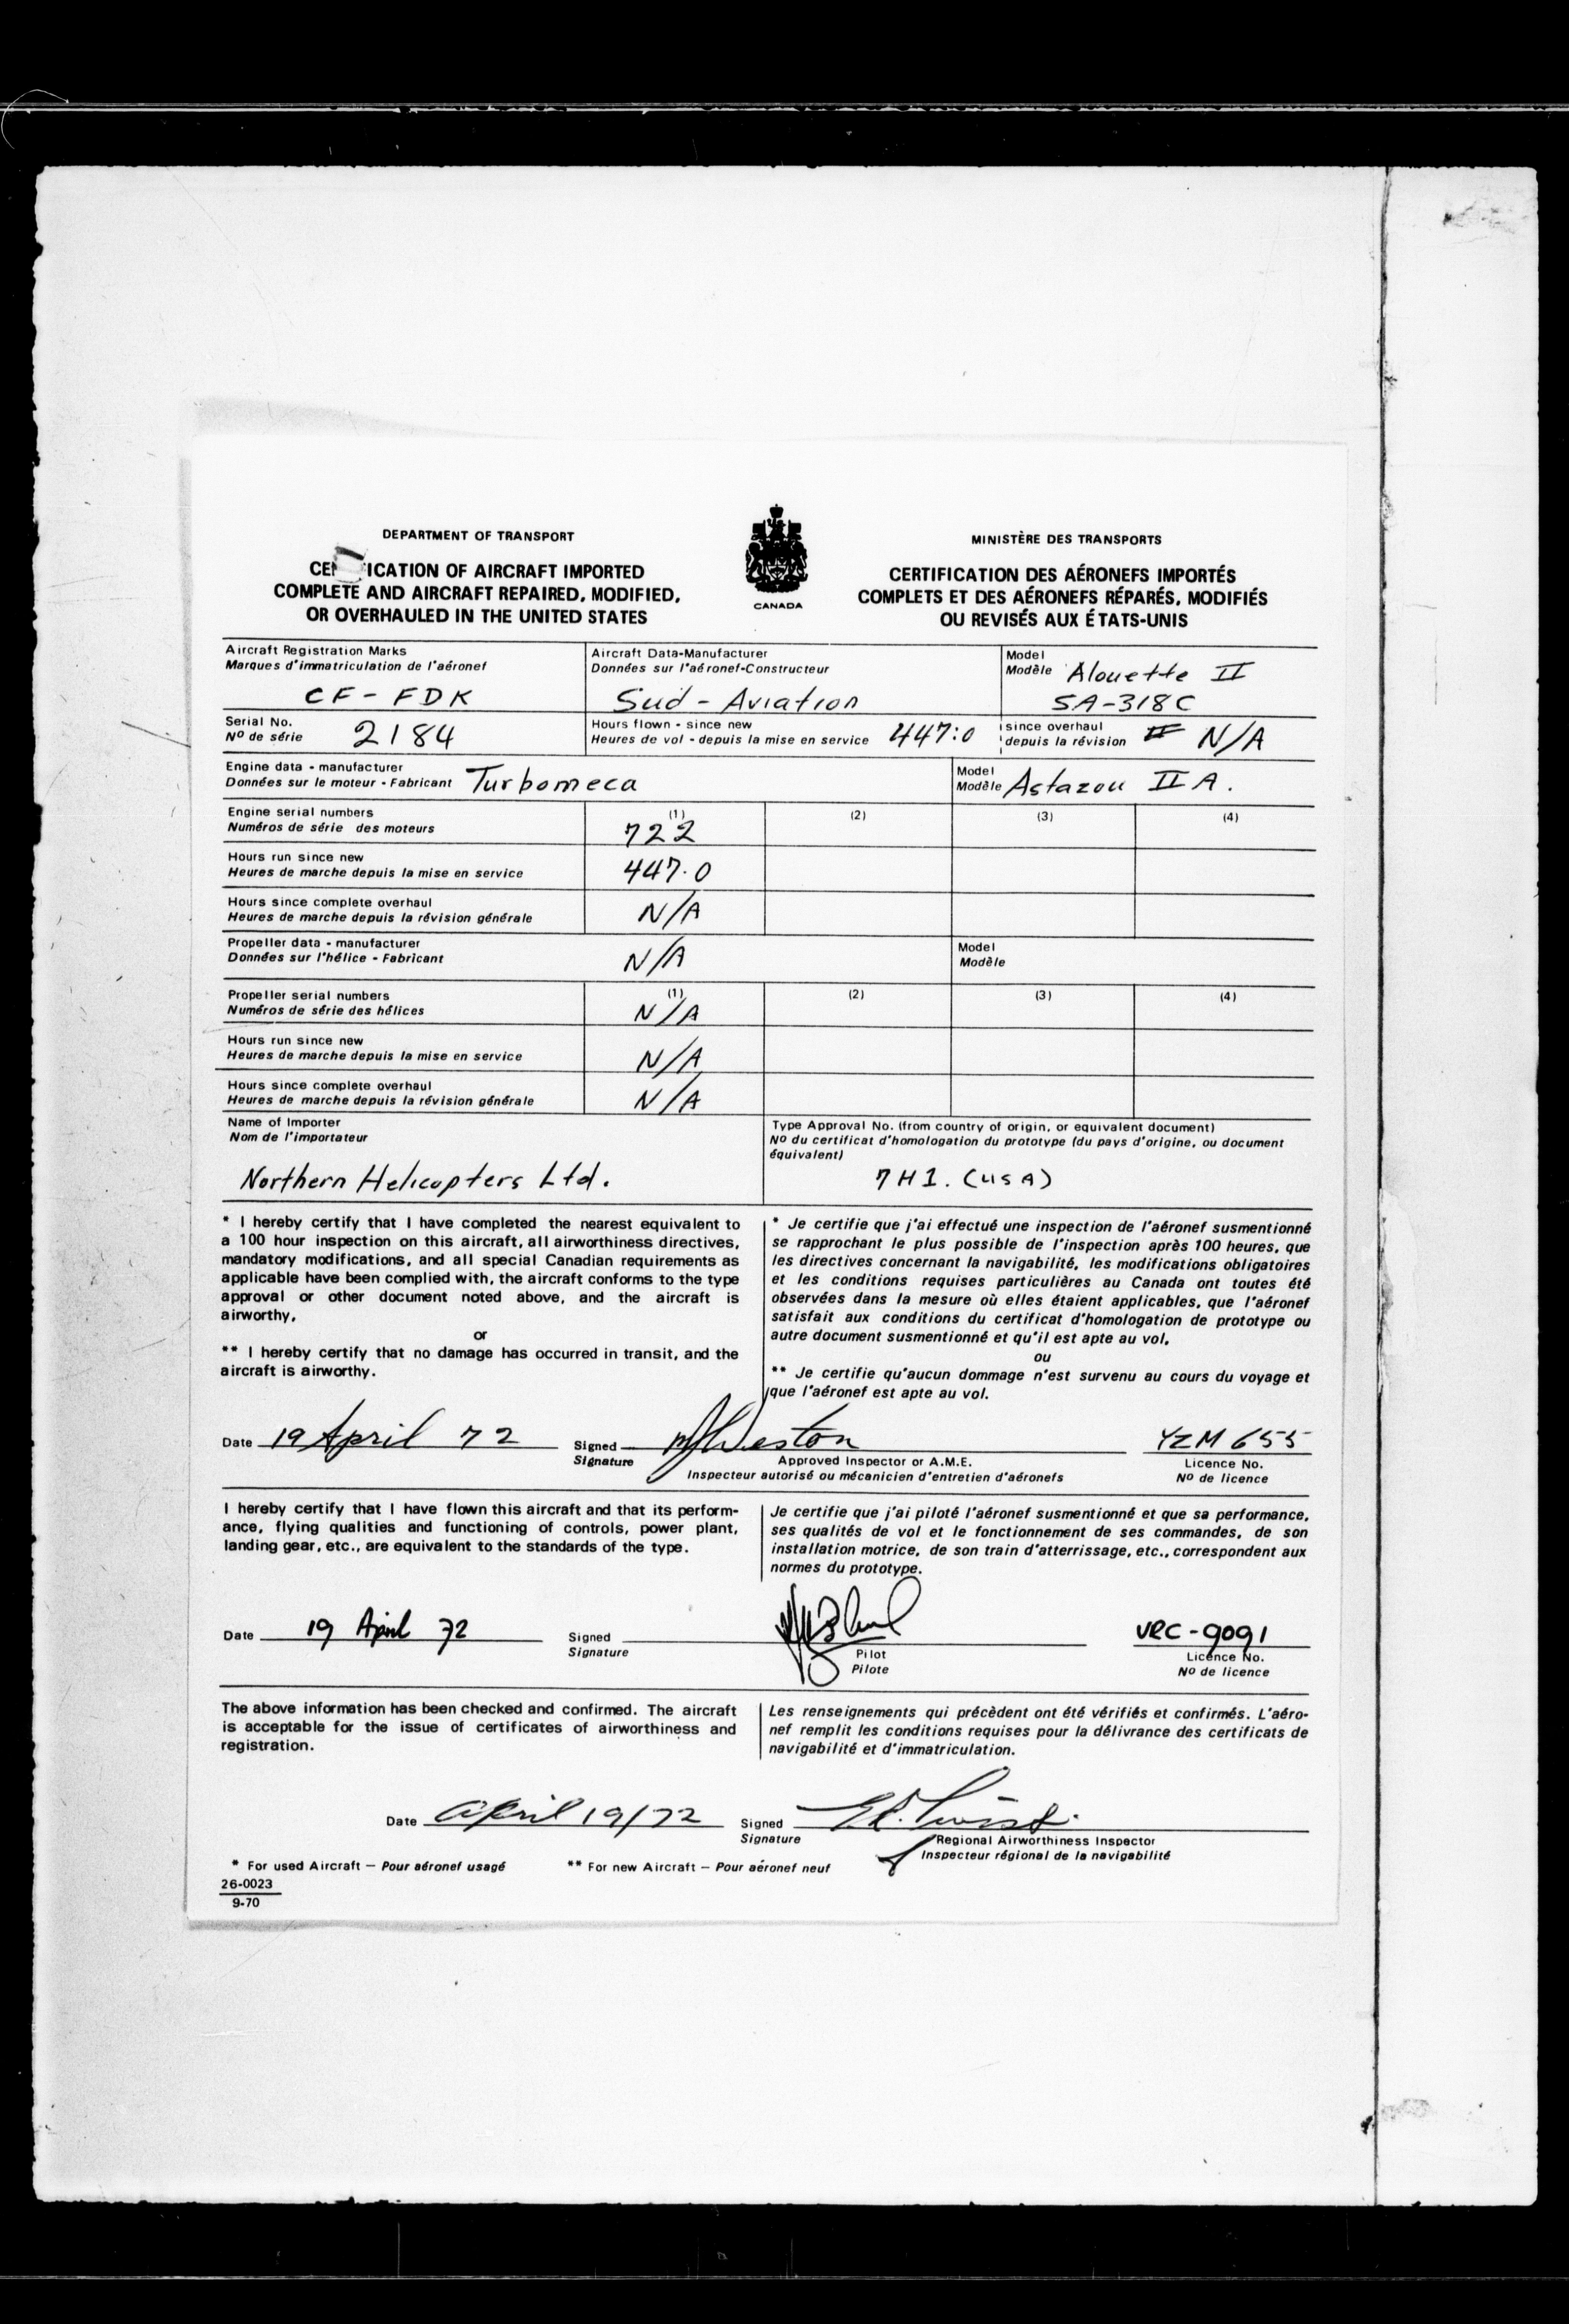 DEPARTMENT OF TRANSPORT
CE ICATION OF AIRCRAFT IMPORTED
COMPLETE AND AIRCRAFT REPAIRED, MODIFIED,
OR OVERHAULED IN THE UNITED STATES
CANADA
MINISTÈRE DES TRANSPORTS
CERTIFICATION DES AÉRONEFS IMPORTÉS
COMPLETS ET DES AÉRONEFS RÉPARÉS, MODIFIÉS
OU REVISÉS AUX ÉTATS-UNIS
Aircraft Registration Marks
Marques d'immatriculation de l'aéronef
CF-FDK
Aircraft Data-Manufacturer
Données sur l'aéronef-Constructeur
Sud-Aviation
Model
Modèle Alouette II
SA-318C
Serial No.
Nº de série 2184
Hours flown - since new
Heures de vol - depuis la mise en service 447:0
since overhaul
depuis la révision N/A
Engine data - manufacturer
Données sur le moteur - Fabricant Turbomeca
Model
Modèle Astazou II A.
Engine serial numbers
Numéros de série des moteurs
(1) (2) (3) (4)
722
Hours run since new
Heures de marche depuis la mise en service
447.0
Hours since complete overhaul
Heures de marche depuis la révision générale
N/A
Propeller data - manufacturer
Données sur l'hélice - Fabricant
N/A
Model
Modèle
Propeller serial numbers
Numéros de série des hélices
(1) (2) (3) (4)
N/A
Hours run since new
Heures de marche depuis la mise en service
N/A
Hours since complete overhaul
Heures de marche depuis la révision générale
N/A
Name of Importer
Nom de l'importateur
Northern Helicopters Ltd.
Type Approval No. (from country of origin, or equivalent document)
Nº du certificat d'homologation du prototype (du pays d'origine, ou document
équivalent)
7H1. (USA)
* I hereby certify that I have completed the nearest equivalent to
a 100 hour inspection on this aircraft, all airworthiness directives,
mandatory modifications, and all special Canadian requirements as
applicable have been complied with, the aircraft conforms to the type
approval or other document noted above, and the aircraft is
airworthy.
or
** I hereby certify that no damage has occurred in transit, and the
aircraft is airworthy.
* Je certifie que j'ai effectué une inspection de l'aéronef susmentionné
se rapprochant le plus possible de l'inspection après 100 heures, que
les directives concernant la navigabilité, les modifications obligatoires
et les conditions requises particulières au Canada ont toutes été
observées dans la mesure où elles étaient applicables, que l'aéronef
satisfait aux conditions du certificat d'homologation de prototype ou
autre document susmentionné et qu'il est apte au vol.
ou
** Je certifie qu'aucun dommage n'est survenu au cours du voyage et
que l'aéronef est apte au vol.
Date 19 April 72
Signed Weston
Signature
Approved Inspector or A.M.E.
Inspecteur autorisé ou mécanicien d'entretien d'aéronefs
YZM 655
Licence No.
Nº de licence
I hereby certify that I have flown this aircraft and that its perform-
ance, flying qualities and functioning of controls, power plant,
landing gear, etc., are equivalent to the standards of the type.
Je certifie que j'ai piloté l'aéronef susmentionné et que sa performance,
ses qualités de vol et le fonctionnement de ses commandes, de son
installation motrice, de son train d'atterrissage, etc., correspondent aux
normes du prototype.
Date 19 April 72
Signed
Signature
Pilot
Pilote
VRC-9091
Licence No.
Nº de licence
The above information has been checked and confirmed. The aircraft
is acceptable for the issue of certificates of airworthiness and
registration.
Les renseignements qui précèdent ont été vérifiés et confirmés. L'aéro-
nef remplit les conditions requises pour la délivrance des certificats de
navigabilité et d'immatriculation.
Date April 19/72
Signed
Signature
Regional Airworthiness Inspector
Inspecteur régional de la navigabilité
* For used Aircraft — Pour aéronef usagé
** For new Aircraft — Pour aéronef neuf
26-0023
9-70